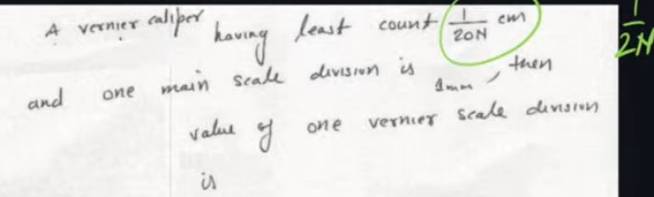 A vernier caliper having least count 1/20N cm
and one main scale division is 1mm, then
value of one vernier scale division
is
1/2N